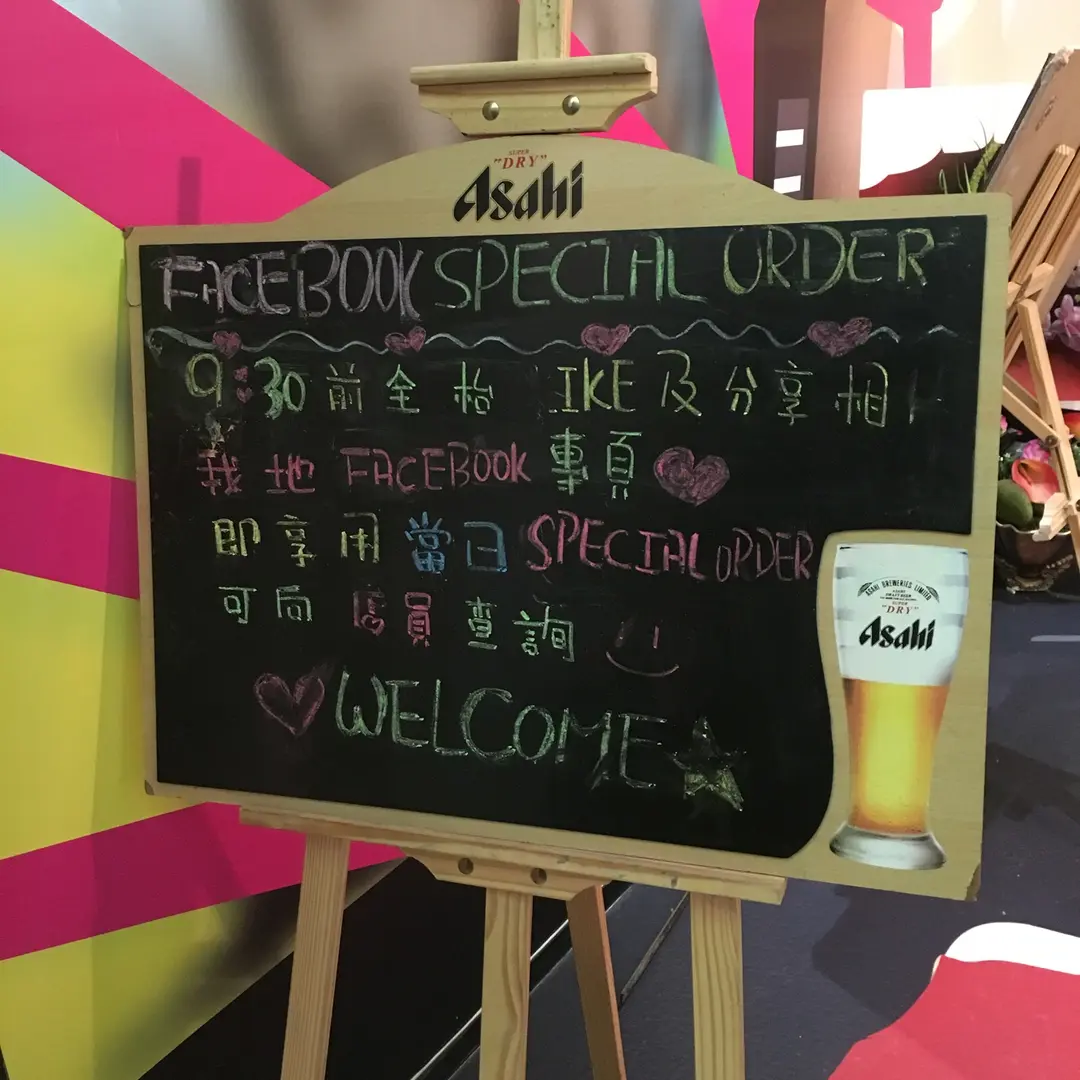 SUPER
"DRY"
Asahi
FACEBOOK SPECIAL ORDER
9:30前全枱 LIKE 及分享相
我地 FACEBOOK 專頁
即享用當日 SPECIAL ORDER
可向店員查詢
WELCOME
ASAHI BREWERIES LIMITED
SUPER
"DRY"
Asahi